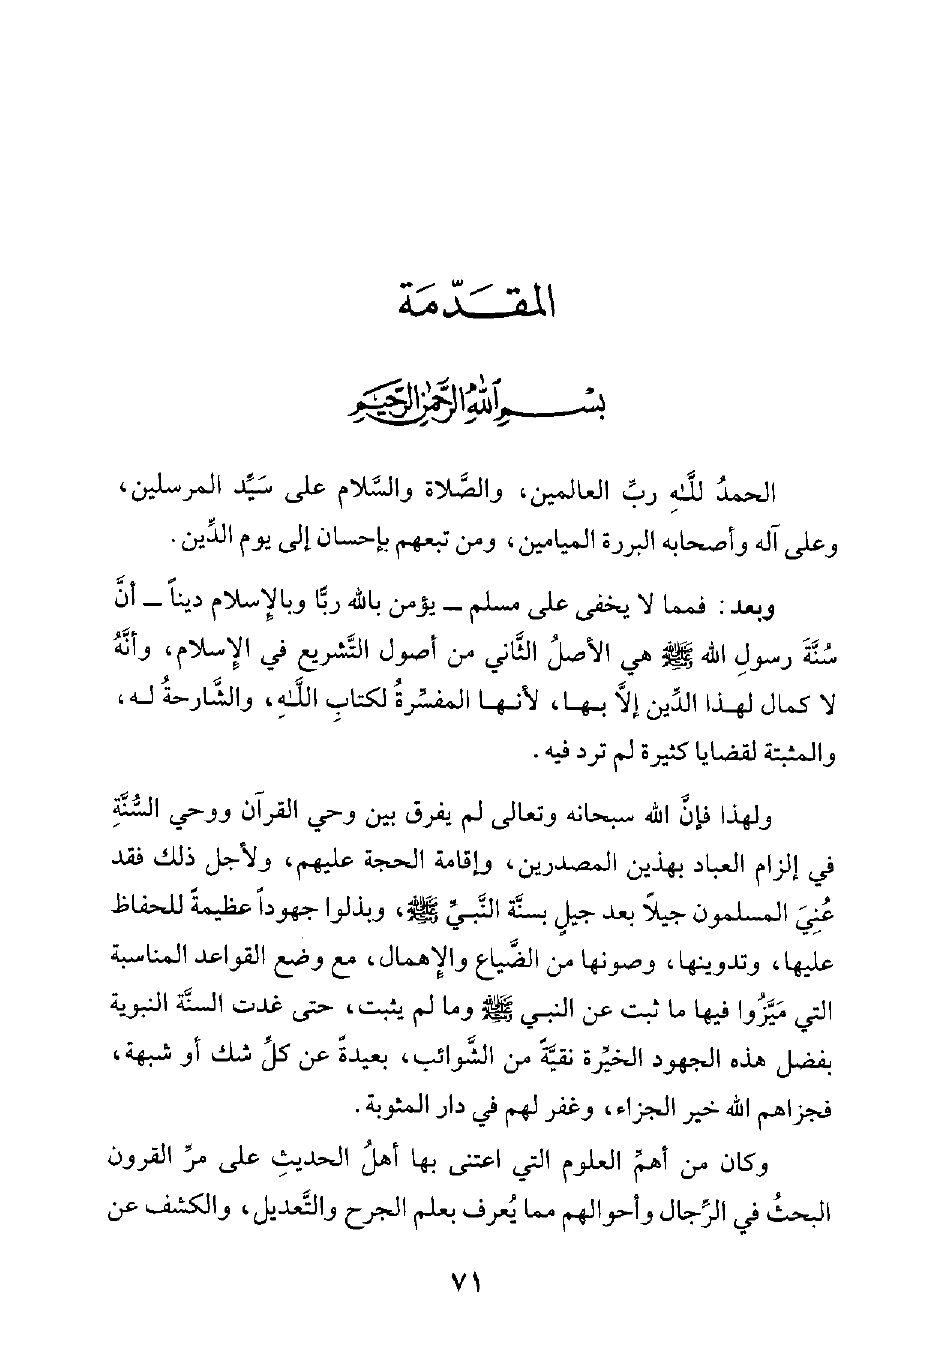 المقـدّمَة
بسـم ٱللهِ الرَّحمٰنِ الرَّحيَمِ
الحمدُ للَّـهِ ربِّ العالمين، والصَّلاة والسَّلام على سَيِّد المرسلين،
وعلى آله وأصحابه البررة الميامين، ومن تبعهم بإحسان إلى يوم الدِّين.
وبعد: فمما لا يخفى على مسلم ــ يؤمن بالله ربًّا وبالإسلام ديناً ــ أنَّ
سُنَّةَ رسولِ الله ﷺ هي الأصلُ الثَّاني من أصول التَّشريع في الإسلام، وأنَّهُ
لا كمال لهذا الدِّين إلاَّ بها، لأنها المفسِّرةُ لكتابِ اللَّـهِ، والشَّارحةُ له،
والمثبتة لقضايا كثيرة لم ترد فيه.
ولهذا فإنَّ الله سبحانه وتعالى لم يفرق بين وحي القرآن ووحي السُّنَّةِ
في إلزام العباد بهذين المصدرين، وإقامة الحجة عليهم، ولأجل ذلك فقد
عُنِيَ المسلمون جيلاً بعد جيلٍ بسنَّة النَّبيِّ ﷺ، وبذلوا جهوداً عظيمةً للحفاظ
عليها، وتدوينها، وصونها من الضَّياع والإهمال، مع وضع القواعد المناسبة
التي مَيَّزُوا فيها ما ثبت عن النبي ﷺ وما لم يثبت، حتى غدت السنَّة النبوية
بفضل هذه الجهود الخيِّرة نقيَّةً من الشَّوائب، بعيدةً عن كلِّ شك أو شبهة،
فجزاهم الله خير الجزاء، وغفر لهم في دار المثوبة.
وكان من أهمِّ العلوم التي اعتنى بها أهلُ الحديثِ على مرِّ القرون
البحثُ في الرِّجال وأحوالهم مما يُعرف بعلم الجرح والتَّعديل، والكشف عن
٧١